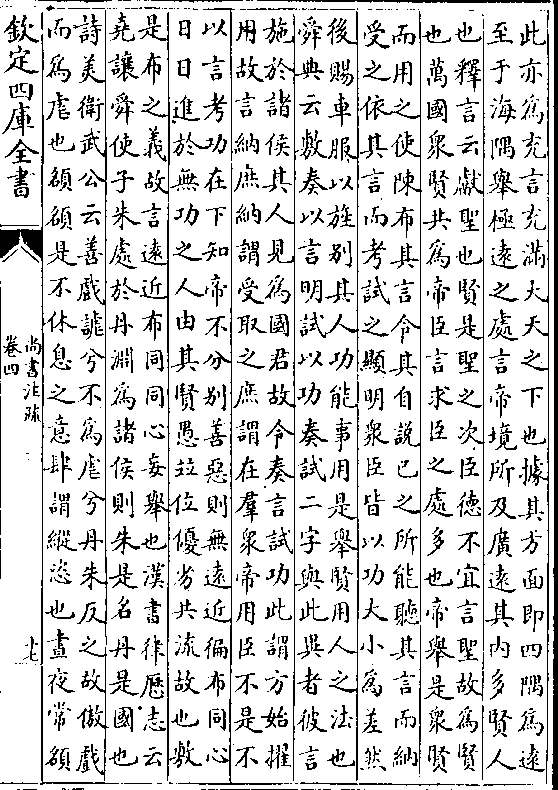 此亦為充言充滿大天之下也據其方面即四隅為遠
至于海隅舉極遠之處言帝境所及廣遠其内多賢人
也釋言云獻聖也賢是聖之次臣德不宜言聖故為賢
也萬國衆賢共為帝臣言求臣之處多也帝舉是衆賢
而用之使陳布其言令其自說已之所能聽其言而納
受之依其言而考試之顯明衆臣皆以功大小為差然
後賜車服以旌别其人功能事用是舉賢用人之法也
舜典云敷奏以言明試以功奏試二字與此異者彼言
施於諸侯其人見為國君故令奏言試功此謂方始擢
用故言納庶納謂受取之庶謂在羣衆帝用臣不是不
以言考功在下知帝不分别善惡則無遠近徧布同心
日日進於無功之人由其賢愚竝位優劣共流故也敷
是布之義故言遠近布同同心妄舉也漢書律歷志云
堯讓舜使子朱處於丹淵為諸侯則朱是名丹是國也
詩美衛武公云善戲謔兮不為虐兮丹朱反之故傲戲
而為虐也頟頟是不休息之意肆謂縱恣也晝夜常頟
欽定四庫全書
尚書注疏
卷四
十七